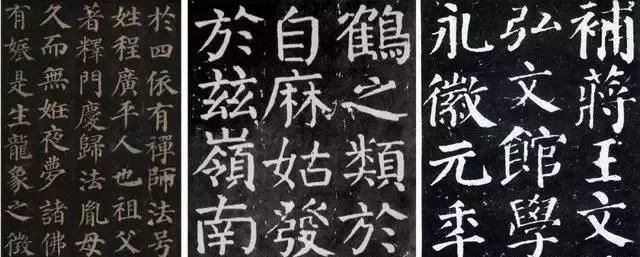 於四依有禪師法号
姓程廣平人也祖父
著釋門慶歸法胤母
久而無姙夜夢諸佛
有娠是生龍象之徵
鶴之類於
自麻姑發
於茲嶺南
補蔣王文
弘文館學
永徽元年